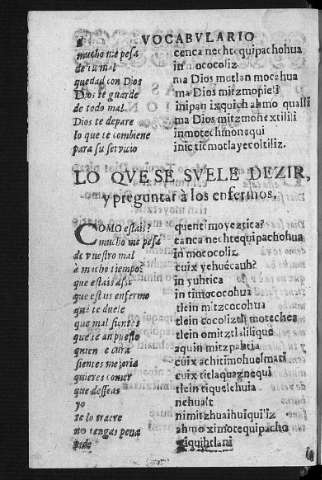 VOCABVLARIO
mucho me pesa cenca nechtequipachohua
de tu mal in mococoliz
quedad con Dios ma Dios motlan mocahua
Dios te guarde ma Dios mitzmopieli
de todo mal inipan ixquich ahmo qualli
Dios te depare ma Dios mitzmonextilili
lo que te combiene inmotechmonequi
para su servicio inic ticmotlayecoltiliz.
LO QVE SE SVELE DEZIR,
y preguntar à los enfermos,
COMO estais? quenti moyeztica?
mucho me pesa cenca nechtequipachohua
de vuestro mal in mococoliz
à mucho tiempo cuix yehuecauh?
que estais assi in yuhtica
que estas enfermo in timococohua
que te duele tlein mitzcocohua
que mal tienes tlein cocoliztli motechca
que te an puesto tlein omitztlalilique
quien te cura aquin mitzpahtia
sientes mejoria cuix achitimohuelmati
quieres comer cuix titlaquaznequi
que desseas tlein tiquelehuia
yo nehuatl
te lo traere nimitzhualhuiquiliz
no tengas pena ahmo ximotequipacho
pide xiquihtlani